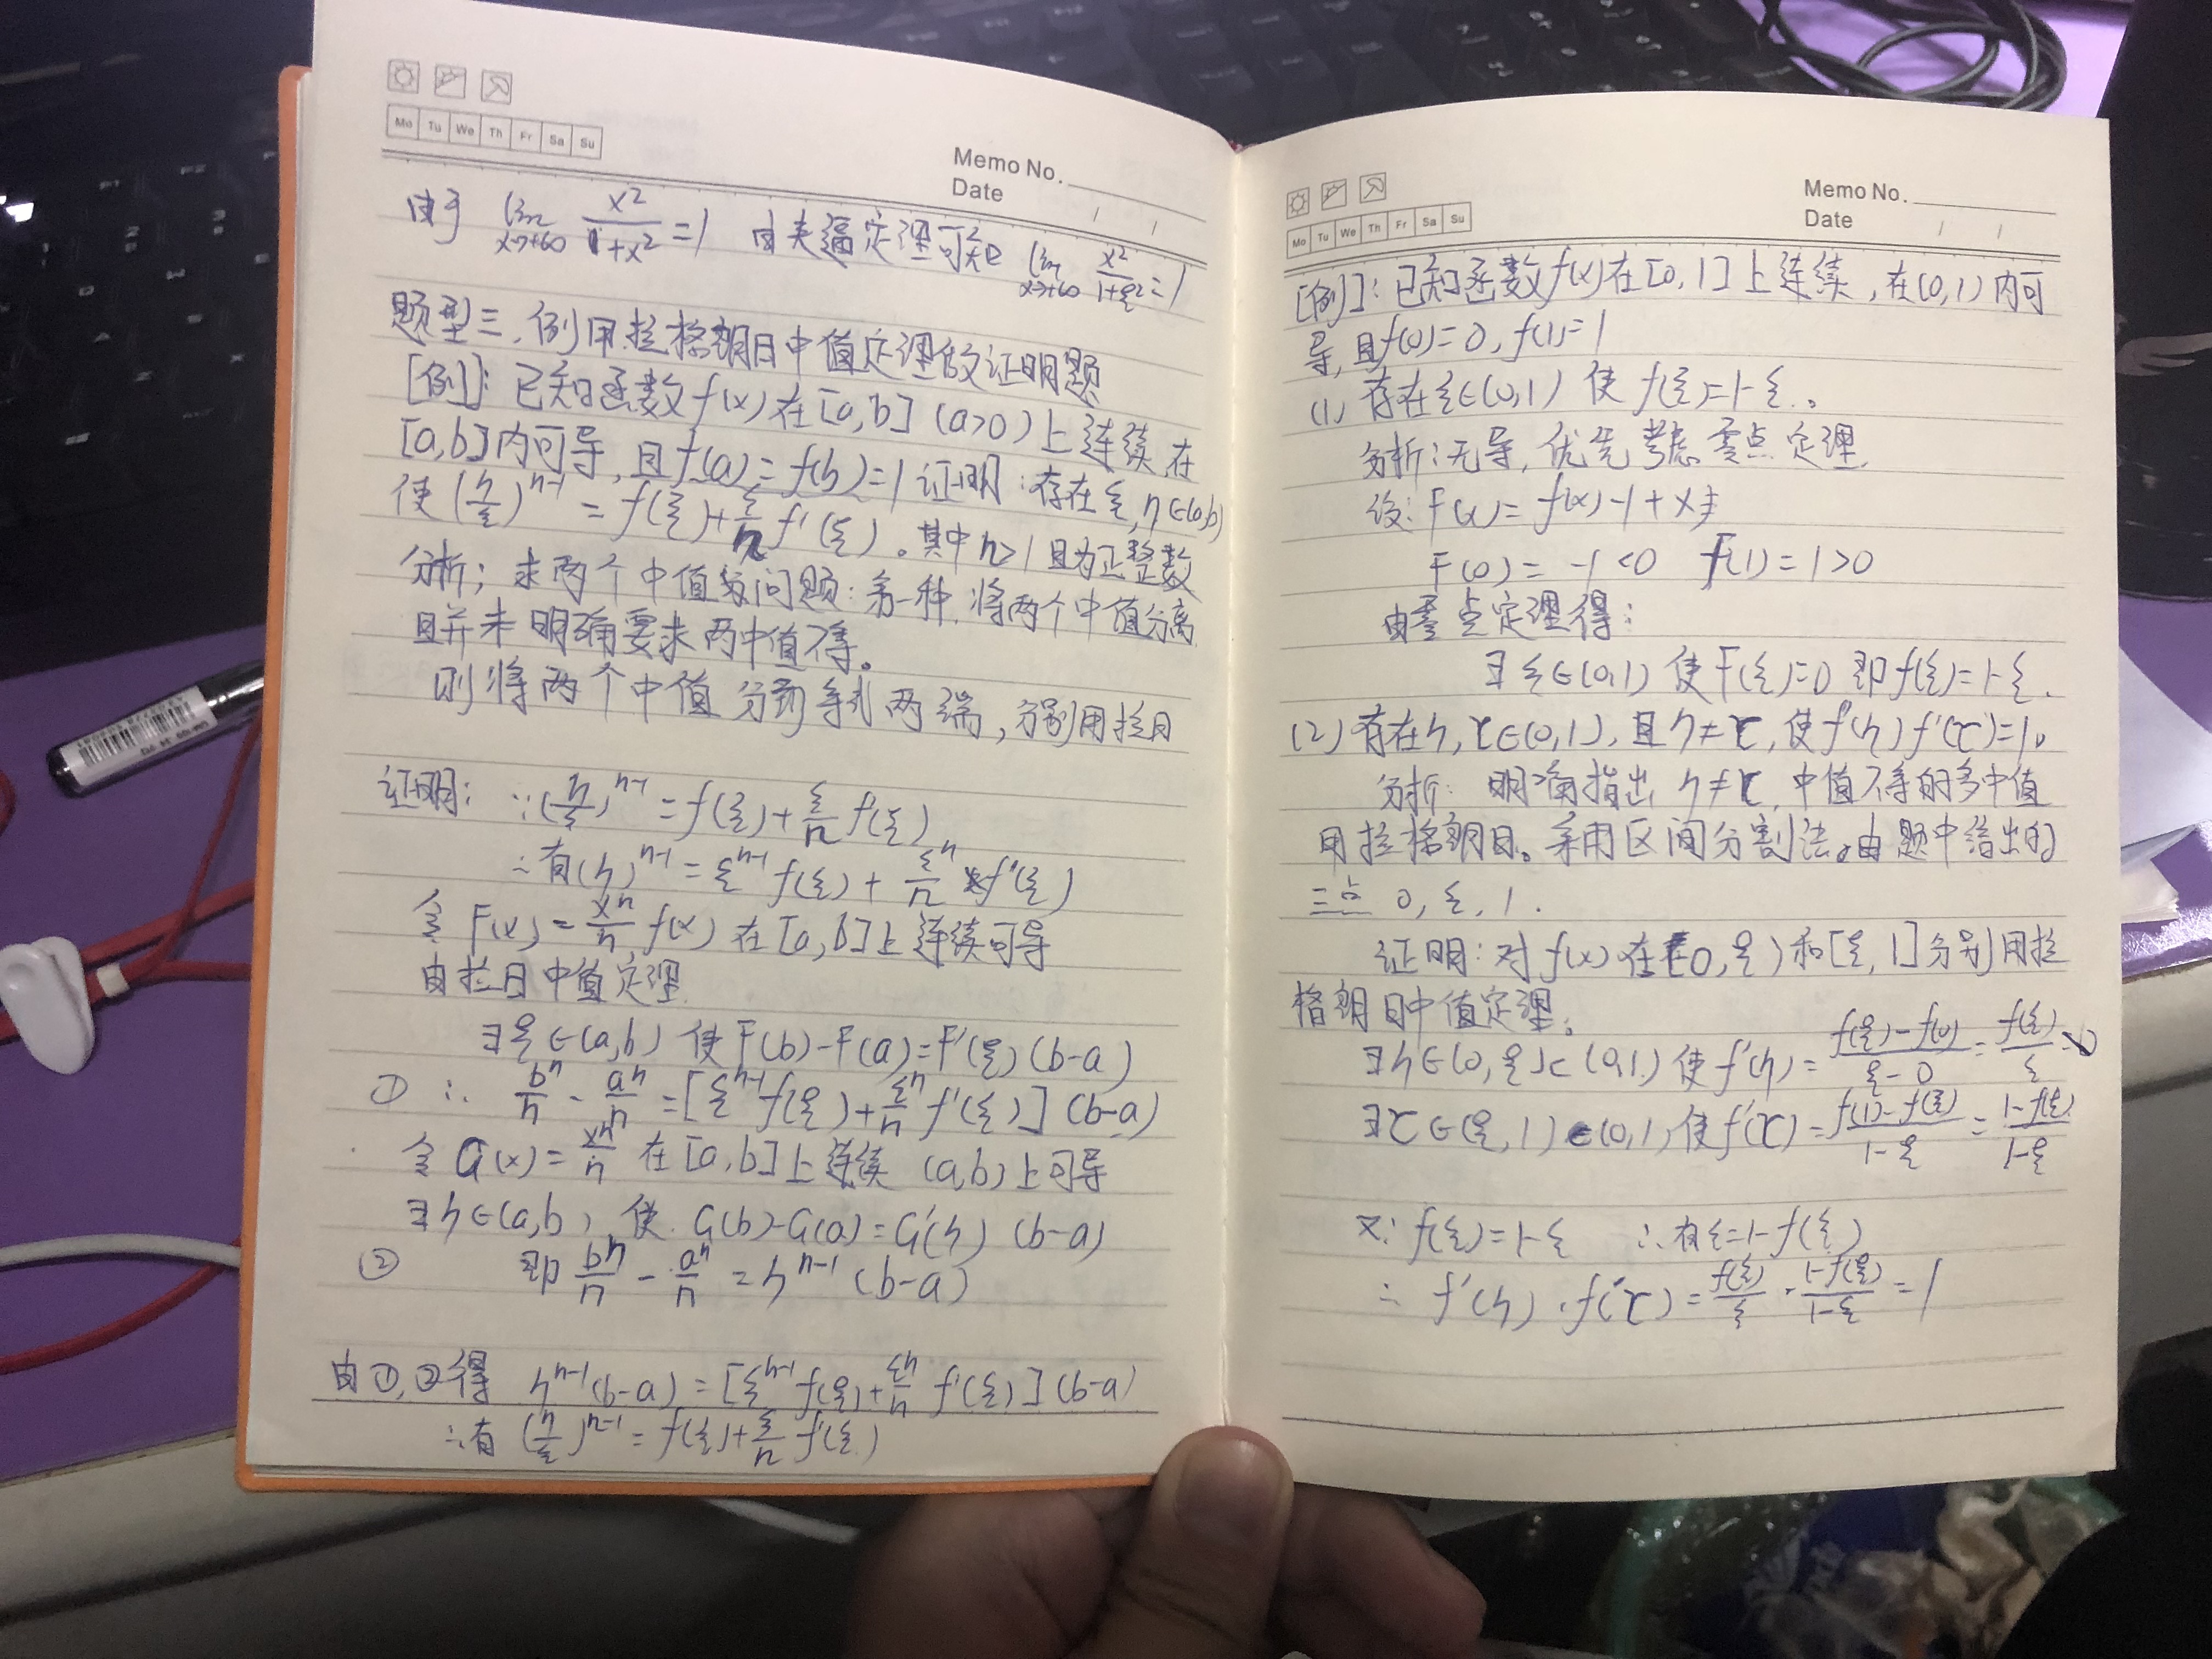 Mo Tu We Th Fr Sa Su
Memo No.
Date / /
由于 lim x→+∞ x²/(1+x²) =1 由夹逼定理可知 lim x→+∞ x²/(1+ξ²) =1
题型三、例用拉格朗日中值定理的证明题
[例]: 已知函数f(x)在[a,b] (a>0)上连续,在
[a,b]内可导,且f(a)=f(b)=1 证明:存在ξ,η∈(a,b)
使(η/ξ)ⁿ⁻¹ = f(ξ)+ξ/n f'(ξ)。其中n>1且为正整数
分析; 求两个中值的问题: 第一种.将两个中值分离
且并未明确要求两中值不等。
则将两个中值分到等式两端,分别用拉日
证明: ∵(η/ξ)ⁿ⁻¹ = f(ξ)+ξ/n f(ξ)
∴有(η)ⁿ⁻¹ = ξⁿ⁻¹f(ξ) + ξⁿ/n f'(ξ)
令F(x)= xⁿ/n f(x) 在[a,b]上连续可导
由拉日中值定理
∃ξ∈(a,b) 使F(b)-F(a)=F'(ξ)(b-a)
① ∴ bⁿ/n - aⁿ/n =[ξⁿ⁻¹f(ξ)+ξⁿ/n f'(ξ)](b-a)
令G(x)= xⁿ/n 在[a,b]上连续 (a,b)上可导
∃η∈(a,b) 使 G(b)-G(a)=G'(η) (b-a)
② 即 bⁿ/n - aⁿ/n =ηⁿ⁻¹ (b-a)
由①,②得 ηⁿ⁻¹(b-a) =[ξⁿ⁻¹f(ξ)+ξⁿ/n f'(ξ)](b-a)
∴有 (η/ξ)ⁿ⁻¹= f(ξ)+ξ/n f'(ξ)
Mo Tu We Th Fr Sa Su
Memo No.
Date / /
[例]: 已知函数f(x)在[0,1]上连续,在(0,1)内可
导,且f(0)=0,f(1)=1
(1) 存在ξ∈(0,1) 使 f(ξ)=1-ξ.。
分析:无导,优先考虑零点定理.
设: F(x)= f(x)-1+x
F(0)= -1<0 F(1)=1>0
由零点定理得:
∃ξ∈(0,1) 使F(ξ)=0 即f(ξ)=1-ξ.
(2) 存在η,τ∈(0,1),且η≠τ,使f'(η)f'(τ)=1。
分析: 明确指出 η≠τ,中值不等的多中值
用拉格朗日。采用区间分割法。由题中给出的
三点 0,ξ,1.
证明:对f(x)在[0,ξ)和[ξ,1]分别用拉
格朗日中值定理。
∃η∈(0,ξ)⊂(0,1) 使f'(η)= (f(ξ)-f(0))/(ξ-0) = f(ξ)/ξ
∃τ∈(ξ,1)∈(0,1)使f'(τ)= (f(1)-f(ξ))/(1-ξ) = (1-f(ξ))/(1-ξ)
又∵ f(ξ)=1-ξ ∴有ξ=1-f(ξ)
∴ f'(η)·f'(τ)= f(ξ)/ξ · (1-f(ξ))/(1-ξ) =1